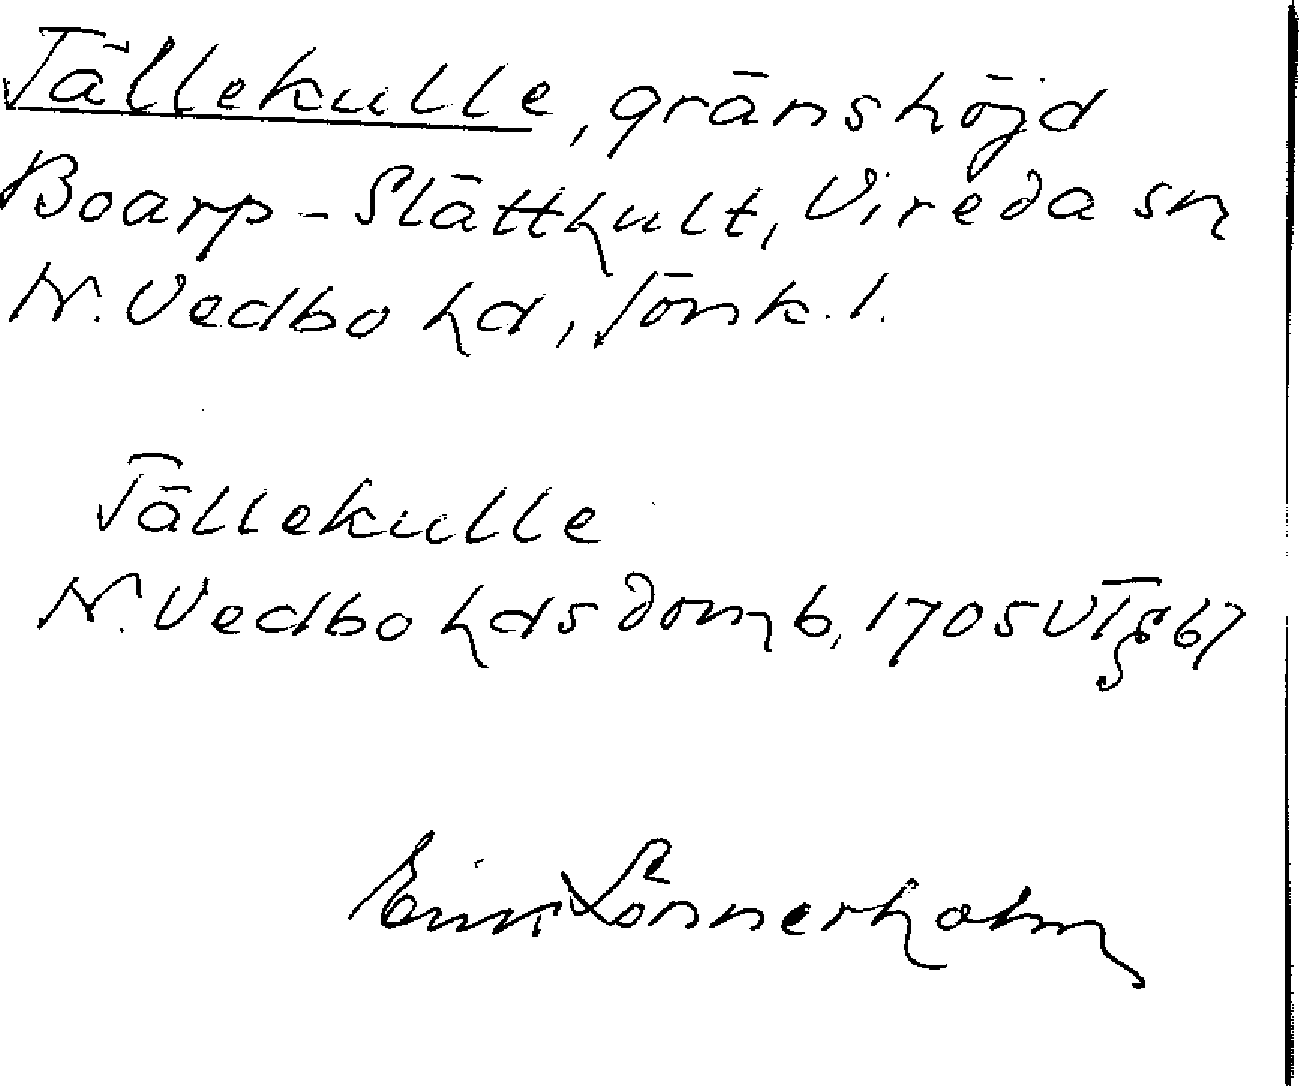 Tällekulle, gränshöjd
Boarp - Slätthult, Vireda sn
N. Vedbo hd, Jönk. l.
Tällekulle
N. Vedbo hds domb, 1705 VT § 67
Lönnerholm